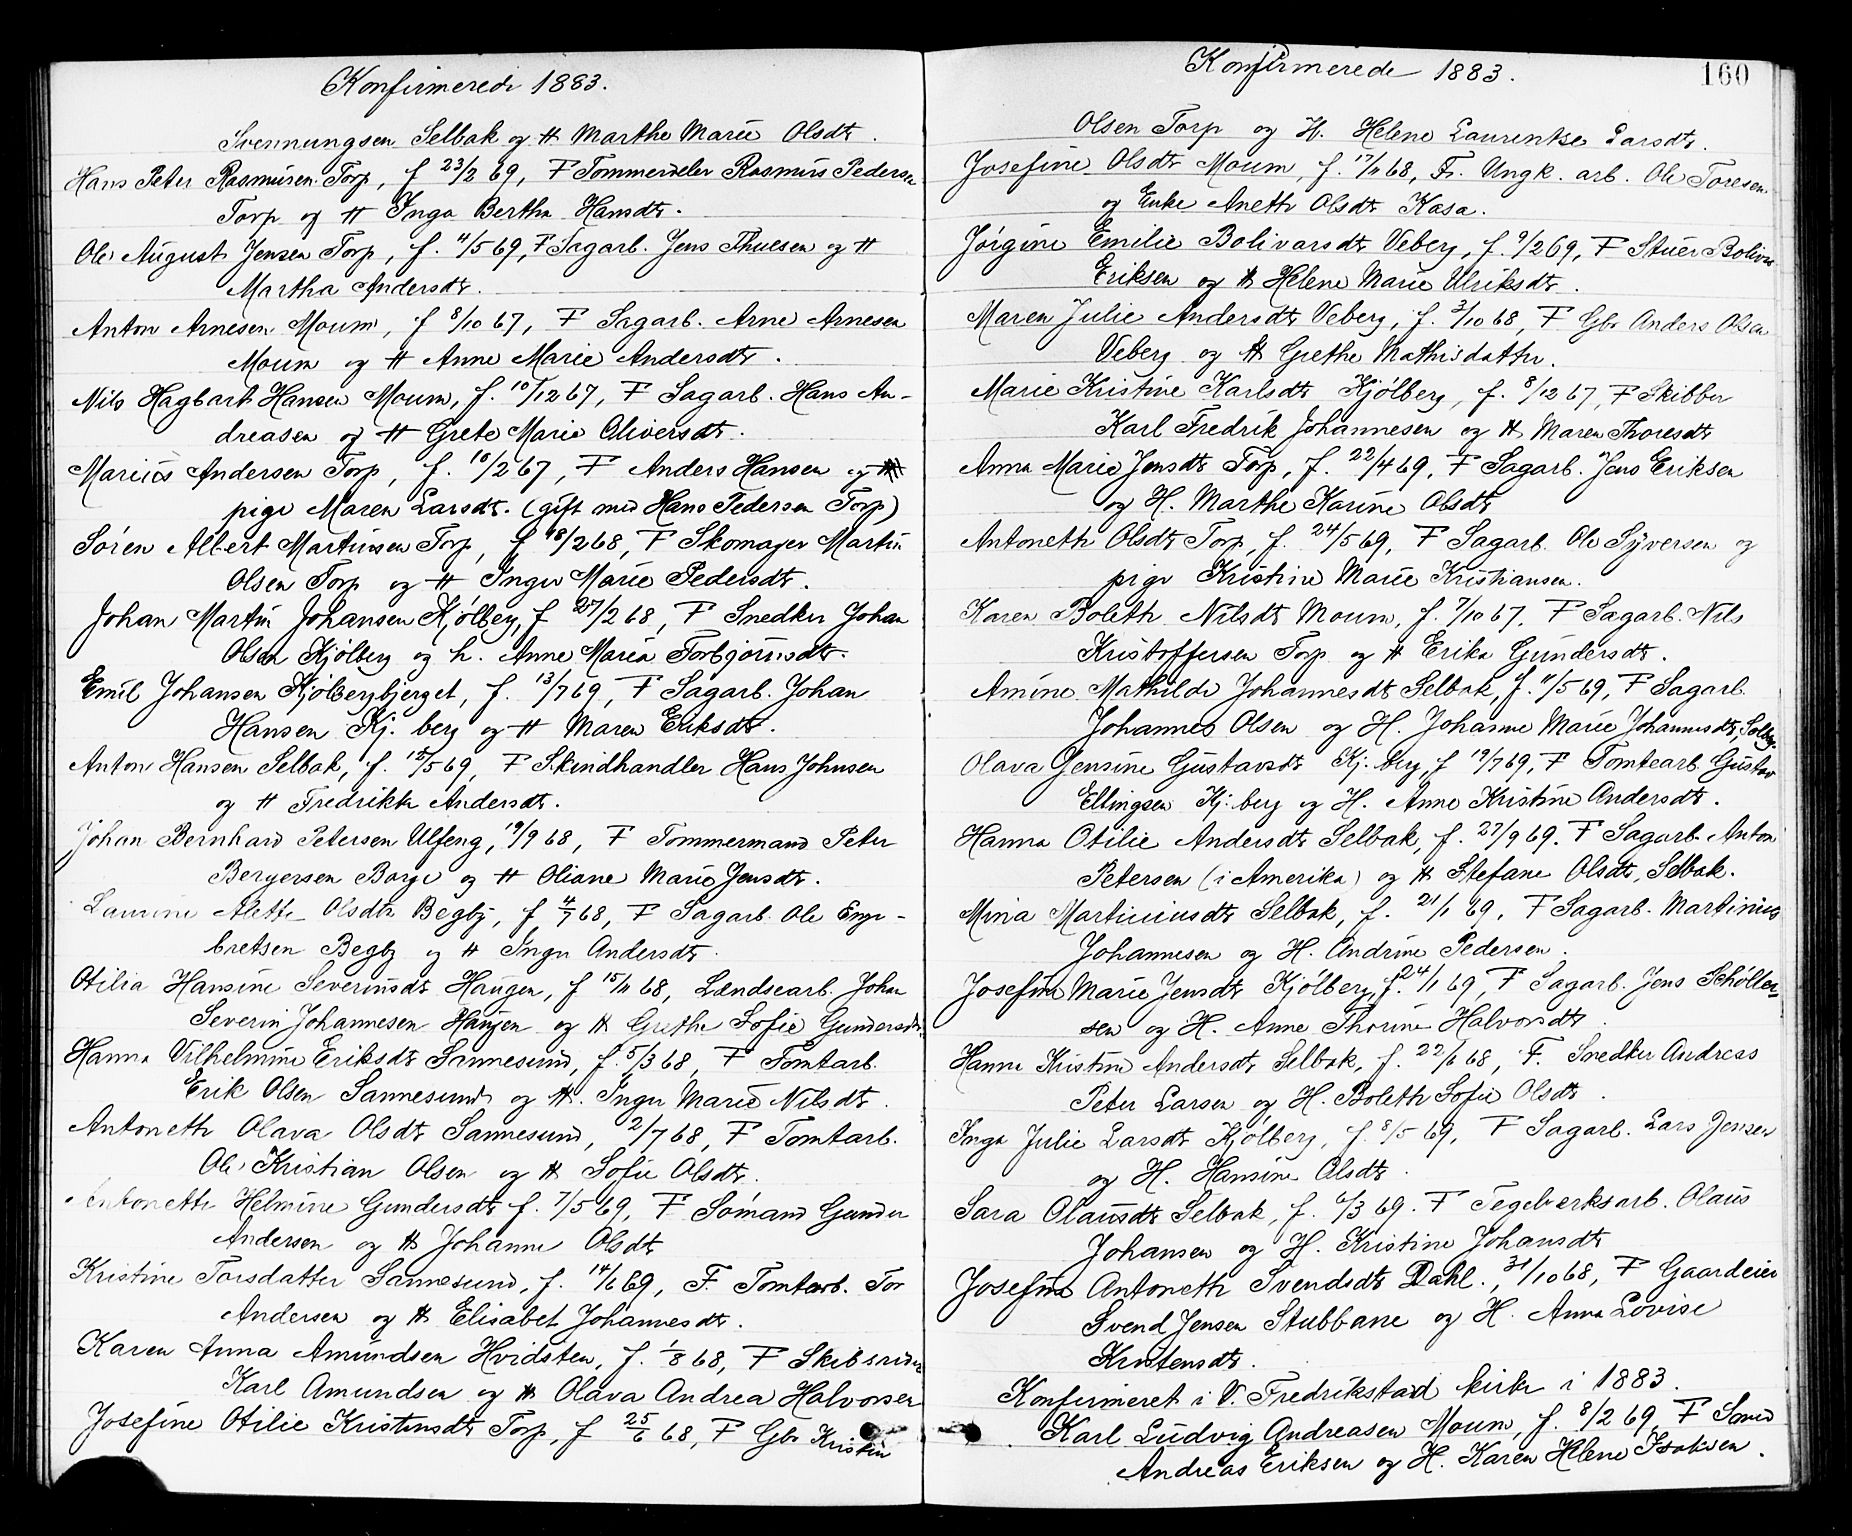 Konfirmerede 1883.
Svennungsen Selbak og H Marthe Marie Olsdtr.
Hans Peter Rasmusen Torp, f 23/2 69, F Tommerdeler Rasmus Pedersen
Torp og H Inga Bertha Hansdtr.
Ole August Jensen Torp, f. 4/5 69, F Sagarb. Jens Thuesen og H
Martha Andersdtr.
Anton Arnesen Moum, f 8/10 67, F Sagarb. Arne Arnesen
Moum og H Anne Marie Andersdtr.
Nils Hagbart Hansen Moum, f. 10/12 67, F Sagarb. Hans An-
dreasen og H Grete Marie Oliversdtr.
Marius Andersen Torp, f. 10/2 67, F Anders Hansen og
pige Maren Larsdtr. (gift med Hans Pedersen Torp)
Søren Albert Martinsen Torp, f 18/2 68, F Skomager Martin
Olsen Torp og H Inger Marie Pedersdtr.
Johan Martin Johansen Kjølberg, f 27/2 68, F Snedker Johan
Olsen Kjølberg og h. Anne Maria Torbjørnsdtr.
Emil Johansen Kjølbergbjerget, f. 13/7 69, F Sagarb. Johan
Hansen Kj. berg og H Maren Eriksdtr.
Anton Hansen Selbak, f. 15/5 69, F Skindhandler Hans Johnsen
og H Fredrikke Andersdtr.
Johan Bernhard Petersen Ulfeng, 19/9 68, F Tommermand Peter
Bergersen Borge og H Oliane Marie Jensdtr.
Laurine Alette Olsdtr Begby, f 4/7 68, F Sagarb. Ole Enge-
bretsen Begby og H Inger Andersdtr.
Otilia Hansine Severinsdtr Haugen, f 15/11 68, Lændsearb. Johan
Severin Johannesen Haugen og H Grethe Sofie Gundersdtr
Hanna Vilhelmine Eriksdtr Sannesund, f. 5/3 68, F Tomtarb.
Erik Olsen Sannesund og H. Inger Marie Nilsdtr.
Antoneth Olava Olsdtr Sannesund, 2/7 68, F Tomtarb.
Ole Kristian Olsen og H Sofie Olsdtr.
Antoneth Helmine Gundersdtr f. 7/5 69, F Sømand Gunder
Andersen og H Johanne Olsdtr
Kristine Torsdatter Sannesund, f. 14/6 69, F. Tomtarb. Tor
Andersen og H Elisabet Johannesdtr.
Karen Anna Amundsen Hvidsten, f. 1/8 68, F Skibsreder
Karl Amundsen og H Olava Andrea Halvorsen
Josefine Otilie Kristensdtr Torp, f 25/6 68, F Gbr Kristen
Konfirmerede 1883.
160
Olsen Torp og H. Helene Laurentse Larsdtr.
Josefine Olsdtr Moum, f. 17/11 68, Fr. Ungk. arb. Ole Toresen
og Enke Aneth Olsdtr Kasa.
Jørgine Emilie Bolivarsdtr Veberg, f. 9/2 69, F Stuer Bolivar
Eriksen og H Helene Marie Ulriksdtr.
Maren Julie Andersdtr Veberg, f. 3/10 68, F Gbr Anders Olsen
Veberg og H Grethe Mathisdatter.
Marie Kristine Karlsdtr Kjølberg, f. 8/12 67, F Skibber
Karl Fredrik Johannesen og H Maren Thoresdtr
Anna Marie Jensdtr Torp, f. 22/4 69, F Sagarb. Jens Eriksen
og H. Marthe Karine Olsdtr
Antoneth Olsdtr Torp, f. 24/5 69, F Sagarb. Ole Syversen og
pige Kristine Marie Kristiansen.
Karen Boleth Nilsdtr Moum, f. 7/10 67, F Sagarb. Nils
Kristoffersen Torp og H Erika Gundersdtr.
Amine Mathilde Johannesdtr Selbak, f. 11/5 69, F Sagarb.
Johannes Olsen og H. Johanne Marie Johannesdtr, Solbg.
Olava Jensine Gustavsdtr Kj. berg, f 19/7 69, F Tomtearb. Gustav
Ellingsen Kj. berg og H. Anne Kristine Andersdtr.
Hanna Otilie Andersdtr Selbak, f. 27/9 69. F Sagarb. Anton
Petersen (i Amerika) og H Stefane Olsdtr, Selbak.
Mina Martiniusdtr Selbak, f. 21/1 69, F Sagarb. Martinius
Johannesen og H. Andrine Pedersen.
Josefine Marie Jensdtr Kjølberg, f. 24/1 69, F Sagarb. Jens Schøller-
sen og H. Anne Thorine Halvorsdtr.
Hanna Kristine Andersdtr Selbak, f. 22/6 68, F. Snedker Andreas
Peter Larsen og H. Boleth Sofie Olsdtr.
Inga Julie Larsdtr Kjølberg, f. 8/5 69, F Sagarb. Lars Jensen
og H. Hansine Olsdtr.
Sara Olausdtr Selbak, f. 6/3 69. F Tegelverksarb. Olaus
Johansen og H. Kristine Johansdtr
Josefine Antoneth Svendsdtr Dahl., 31/10 68, F Gaardeier
Svend Jensen Stubbane og H. Anna Lovise
Kristensdtr.
Konfirmeret i V. Fredrikstad kirke i 1883.
Karl Ludvig Andreasen Moum, f. 8/2 69, F Smed
Andreas Eriksen og H. Karen Helene Isaksen.